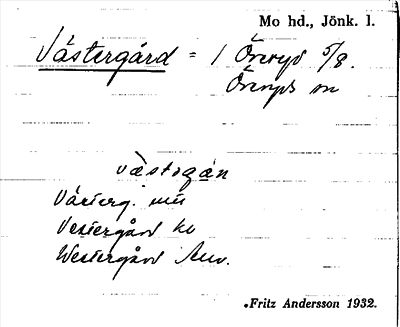 Mo hd., Jönk. l.
Västergård = 1 Öreryd 5/8.
Öreryds sn
västrgán
Västerg. mtl
Vestergård kb
Westergård Anv.
Fritz Andersson 1932.